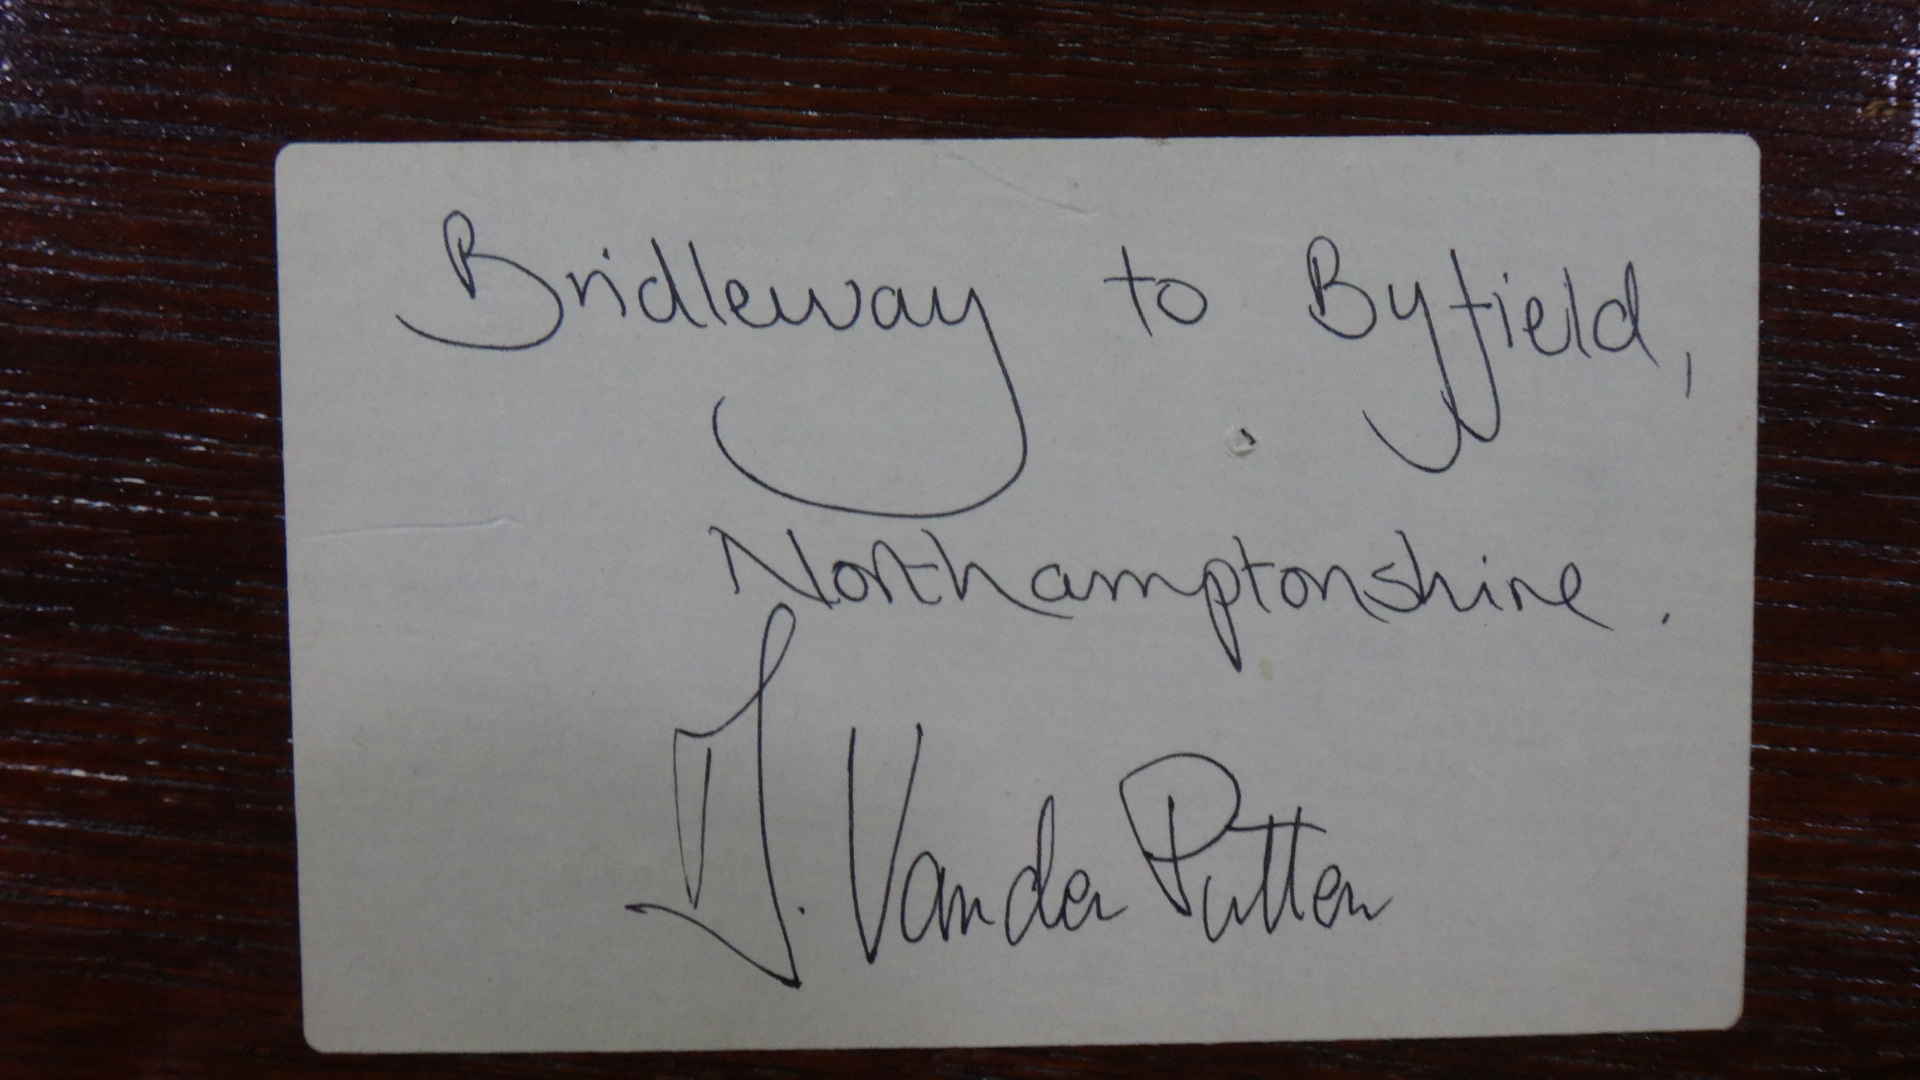 Bridleway to Byfield,
Northamptonshire.
Van der Putten